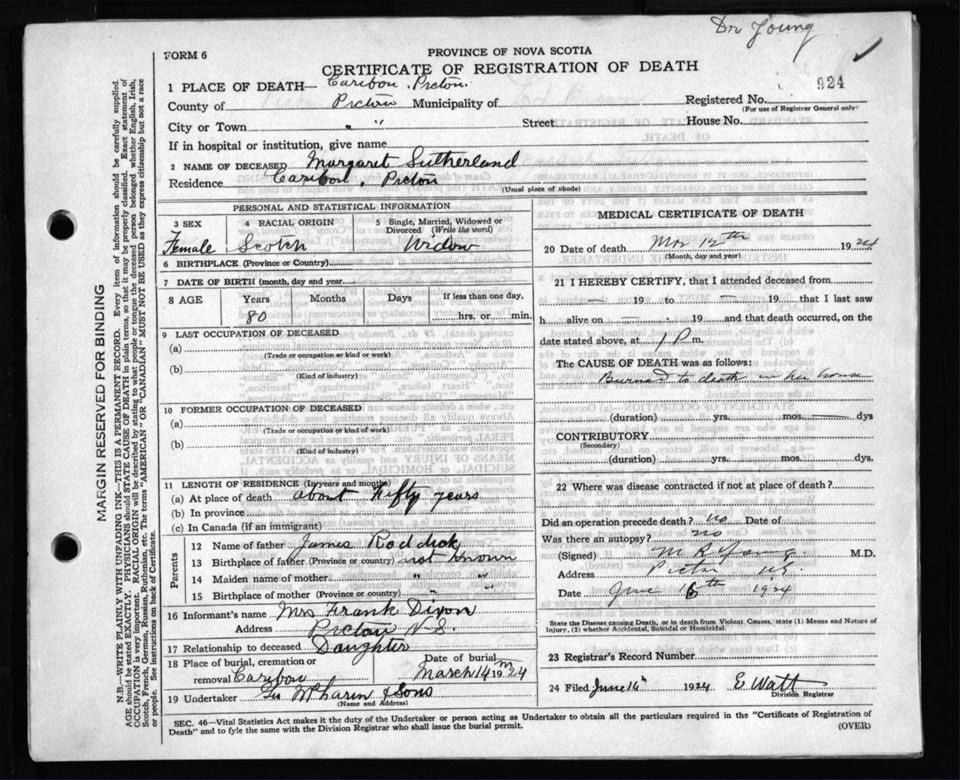 Dr Young
FORM 6
PROVINCE OF NOVA SCOTIA
CERTIFICATE OF REGISTRATION OF DEATH
924
1 PLACE OF DEATH— Caribou, Pictou.
County of Pictou Municipality of
Registered No.
(For use of Registrar General only)
City or Town " " Street House No.
If in hospital or institution, give name
2 NAME OF DECEASED Margaret Sutherland
Residence Caribou, Pictou
(Usual place of abode)
PERSONAL AND STATISTICAL INFORMATION
3 SEX 4 RACIAL ORIGIN 5 Single, Married, Widowed or Divorced (Write the word)
Female Scotch Widow
6 BIRTHPLACE (Province or Country)
7 DATE OF BIRTH (month, day and year)
8 AGE Years Months Days If less than one day,
80 hrs. or min.
9 LAST OCCUPATION OF DECEASED
(a)
(Trade or occupation or kind or work)
(b)
(Kind of industry)
10 FORMER OCCUPATION OF DECEASED
(a)
(Trade or occupation or kind of work)
(b)
(Kind of industry)
11 LENGTH OF RESIDENCE (In years and months)
(a) At place of death about Fifty years
(b) In province
(c) In Canada (if an immigrant)
Parents
12 Name of father James Roddick
13 Birthplace of father (Province or country) not known
14 Maiden name of mother " "
15 Birthplace of mother (Province or country) " "
16 Informant's name Mrs Frank Dixon
Address Pictou N.S.
17 Relationship to deceased Daughter
18 Place of burial, cremation or removal Caribou
Date of burial March 14 1924
19 Undertaker & Sons
(Name and Address)
MEDICAL CERTIFICATE OF DEATH
20 Date of death Mar 12th 1924
(Month, day and year)
21 I HEREBY CERTIFY, that I attended deceased from
— 19 to — 19 that I last saw
h alive on — 19 and that death occurred, on the
date stated above, at 1 P m.
The CAUSE OF DEATH was as follows:
Burned to death in her house
(duration) yrs. mos. dys
CONTRIBUTORY
(Secondary)
(duration) yrs. mos. dys.
22 Where was disease contracted if not at place of death?
Did an operation precede death? no Date of
Was there an autopsy? no
(Signed) M R Young M.D.
Address Pictou N.S.
Date June 16th 1924
State the Disease causing Death, or in death from Violent Causes, state (1) Means and Nature of
Injury, (2) whether Accidental, Suicidal or Homicidal.
23 Registrar's Record Number
24 Filed June 16th 1924 E. Watt
Division Registrar
SEC. 46—Vital Statistics Act makes it the duty of the Undertaker or person acting as Undertaker to obtain all the particulars required in the "Certificate of Registration of
Death" and to fyle the same with the Division Registrar who shall issue the burial permit.
(OVER)
MARGIN RESERVED FOR BINDING
N.B.—WRITE PLAINLY WITH UNFADING INK—THIS IS A PERMANENT RECORD. Every item of information should be carefully supplied.
AGE should be stated EXACTLY. PHYSICIANS should STATE CAUSE OF DEATH in plain terms, so that it may be properly classified. Exact statement of
OCCUPATION is very important. RACIAL ORIGIN will be described by stating to what people or tongue the deceased person belonged whether English, Irish,
Scotch, French, German, Russian, Ruthenian, etc. The terms "AMERICAN" OR "CANADIAN" MUST NOT BE USED as they express citizenship but not a race
or people. See instructions on back of Certificate.